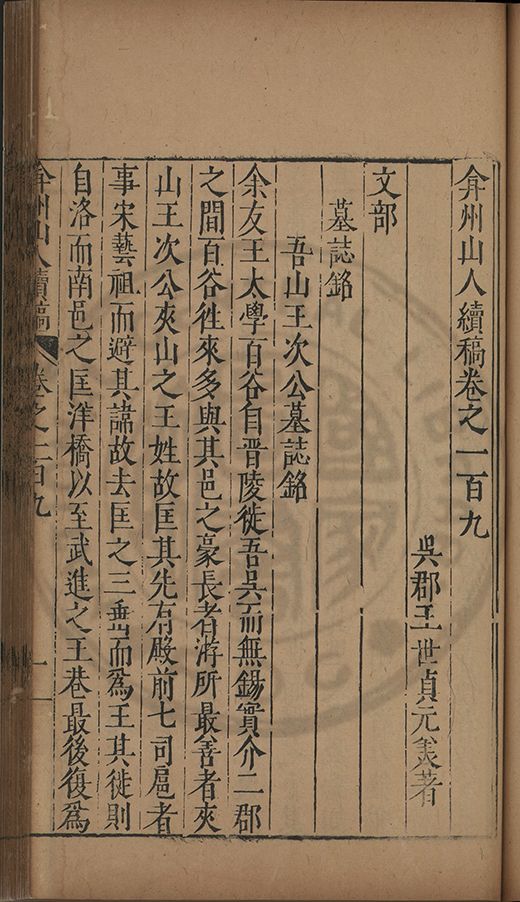 弇州山人續稿卷之一百九
吳郡王世貞元美著
文部
墓誌銘
吾山王次公墓誌銘
余友王太學百谷自晉陵徙吾吳而無錫實介二郡
之間百谷徃來多與其邑之豪長者游所最善者夾
山王次公夾山之王姓故匡其先有殿前七司扈者
事宋藝祖而避其諱故去匡之三畫而爲王其徙則
自洛而南邑之匡洋橋以至武進之王巷最後復爲
弇州山人續稿 卷之一百九 一